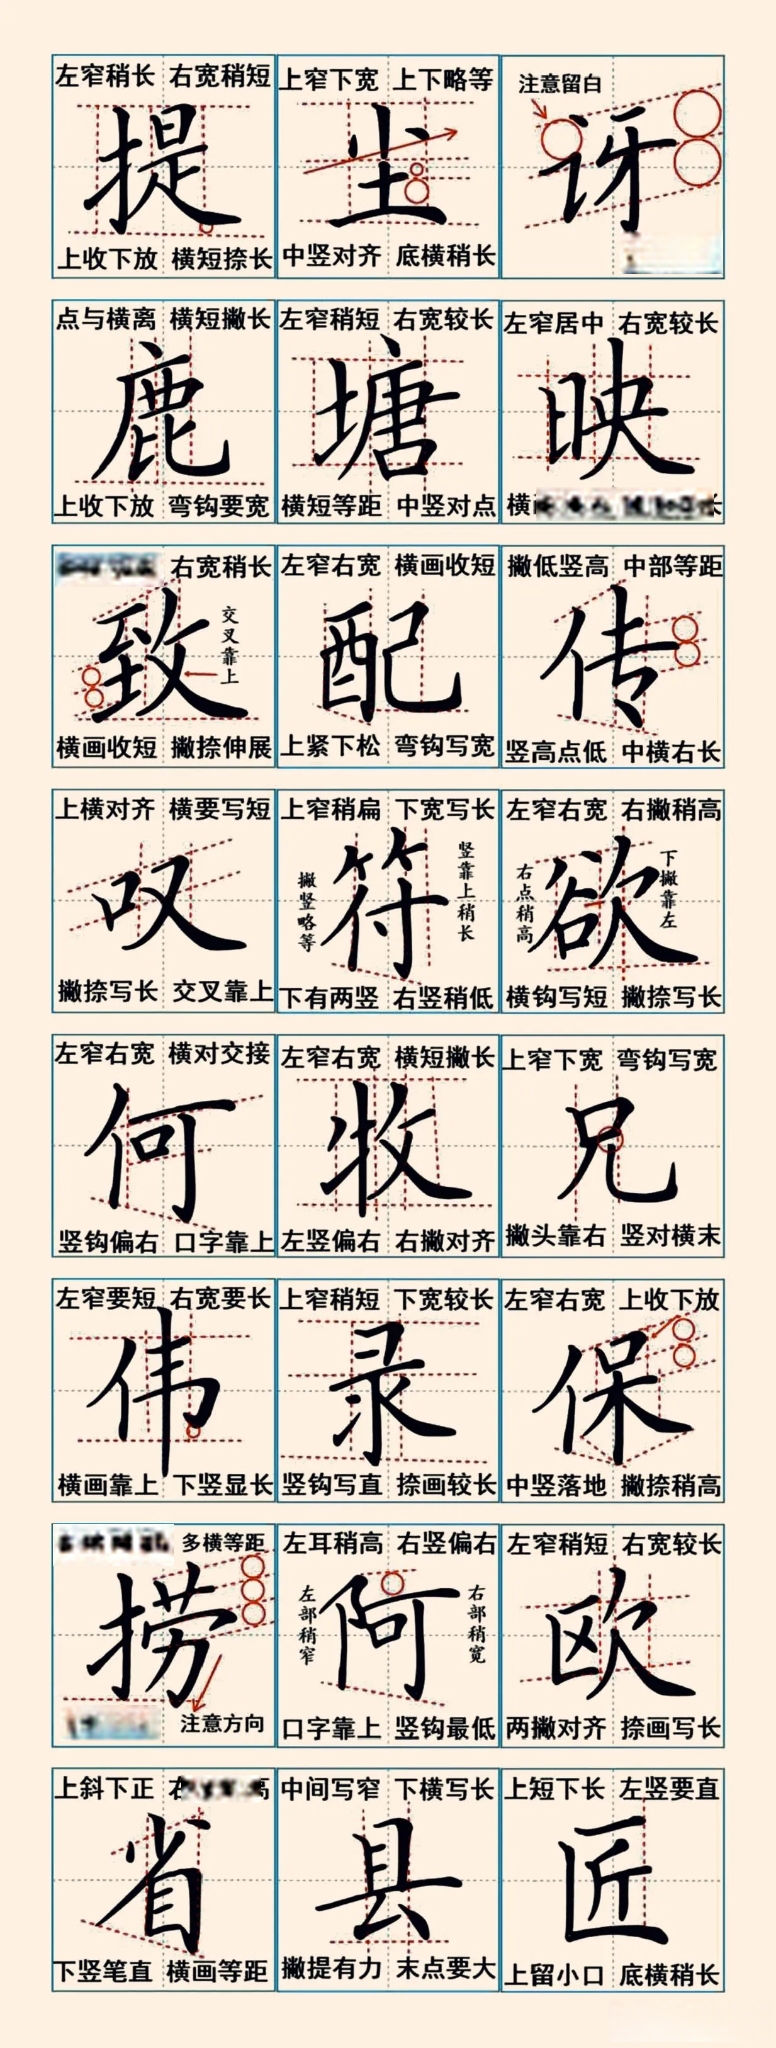 左窄稍长 右宽稍短
提
上收下放 横短捺长
上窄下宽 上下略等
尘
中竖对齐 底横稍长
注意留白
讶
点与横离 横短撇长
鹿
上收下放 弯钩要宽
左窄稍短 右宽较长
塘
横短等距 中竖对点
左窄居中 右宽较长
映
横
右宽稍长
致
交叉靠上
横画收短 撇捺伸展
左窄右宽 横画收短
配
上紧下松 弯钩写宽
撇低竖高 中部等距
传
竖高点低 中横右长
上横对齐 横要写短
叹
撇捺写长 交叉靠上
上窄稍扁 下宽写长
撇竖略等
符
竖靠上稍长
下有两竖 右竖稍低
左窄右宽 右撇稍高
右点稍高
欲
下撇靠左
横钩写短 撇捺写长
左窄右宽 横对交接
何
竖钩偏右 口字靠上
左窄右宽 横短撇长
牧
左竖偏右 右撇对齐
上窄下宽 弯钩写宽
兄
撇头靠右 竖对横末
左窄要短 右宽要长
伟
横画靠上 下竖显长
上窄稍短 下宽较长
录
竖钩写直 捺画较长
左窄右宽 上收下放
保
中竖落地 撇捺稍高
多横等距
捞
注意方向
左耳稍高 右竖偏右
左部稍窄
阿
右部稍宽
口字靠上 竖钩最低
左窄稍短 右宽较长
欧
两撇对齐 捺画写长
上斜下正
省
下竖笔直 横画等距
中间写窄 下横写长
县
撇提有力 末点要大
上短下长 左竖要直
匠
上留小口 底横稍长